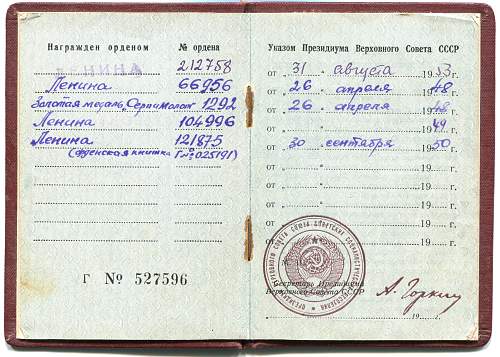 Награжден орденом
№ ордена
ЛЕНИНА
212758
Ленина 66956
Золотая медаль "Серп и Молот" 1292
Ленина 104996
Ленина 121875
(орденская книжка Г № 025191)
Г № 527596
Указом Президиума Верховного Совета СССР
от "31" августа 1953 г.
от "26" апреля 1948 г.
от "26" апреля 1948 г.
от " " 1949 г.
от "30" сентября 1950 г.
от " " 19 г.
от " " 19 г.
от " " 19 г.
от " " 19 г.
Секретарь Президиума
Верховного Совета СССР
А. Горкин
19 г.